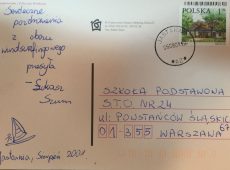 Serdeczne
pozdrowienia
z obozu
windsurfingowego
przesyła
- Łukasz
Szum
Jastarnia, Sierpień 2001
POLSKA
SZKOŁA PODSTAWOWA
STO NR 24
ul: POWSTAŃCÓW ŚLĄSKICH
67
01-355 WARSZAWA